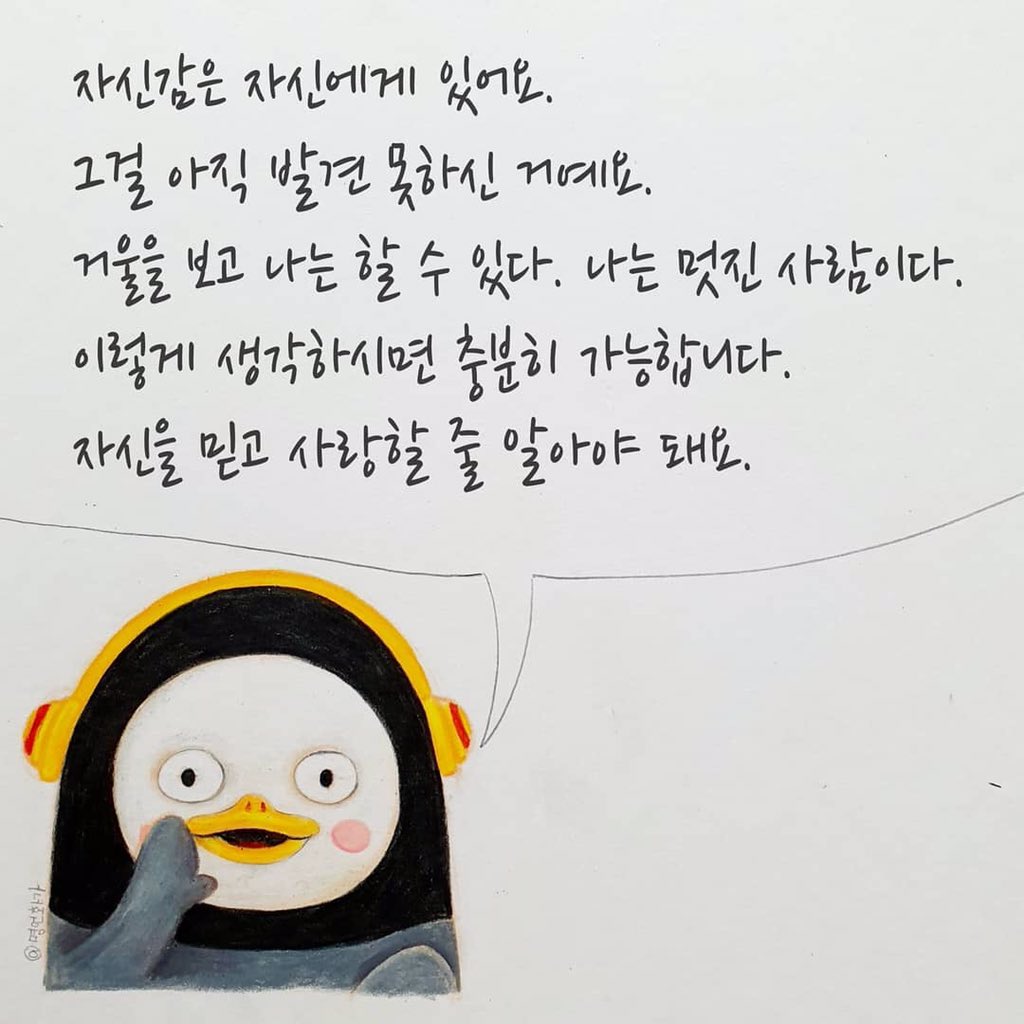 자신감은 자신에게 있어요.
그걸 아직 발견 못하신 거예요.
거울을 보고 나는 할 수 있다. 나는 멋진 사람이다.
이렇게 생각하시면 충분히 가능합니다.
자신을 믿고 사랑할 줄 알아야 돼요.